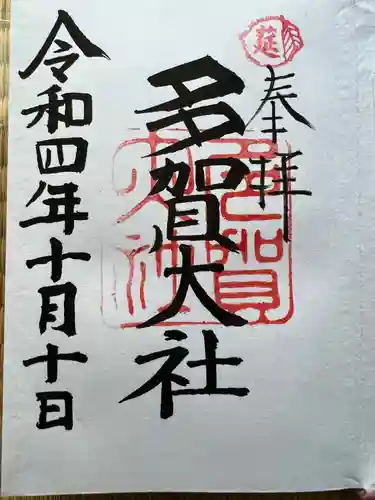 奉拝
多賀大社
令和四年十月十日